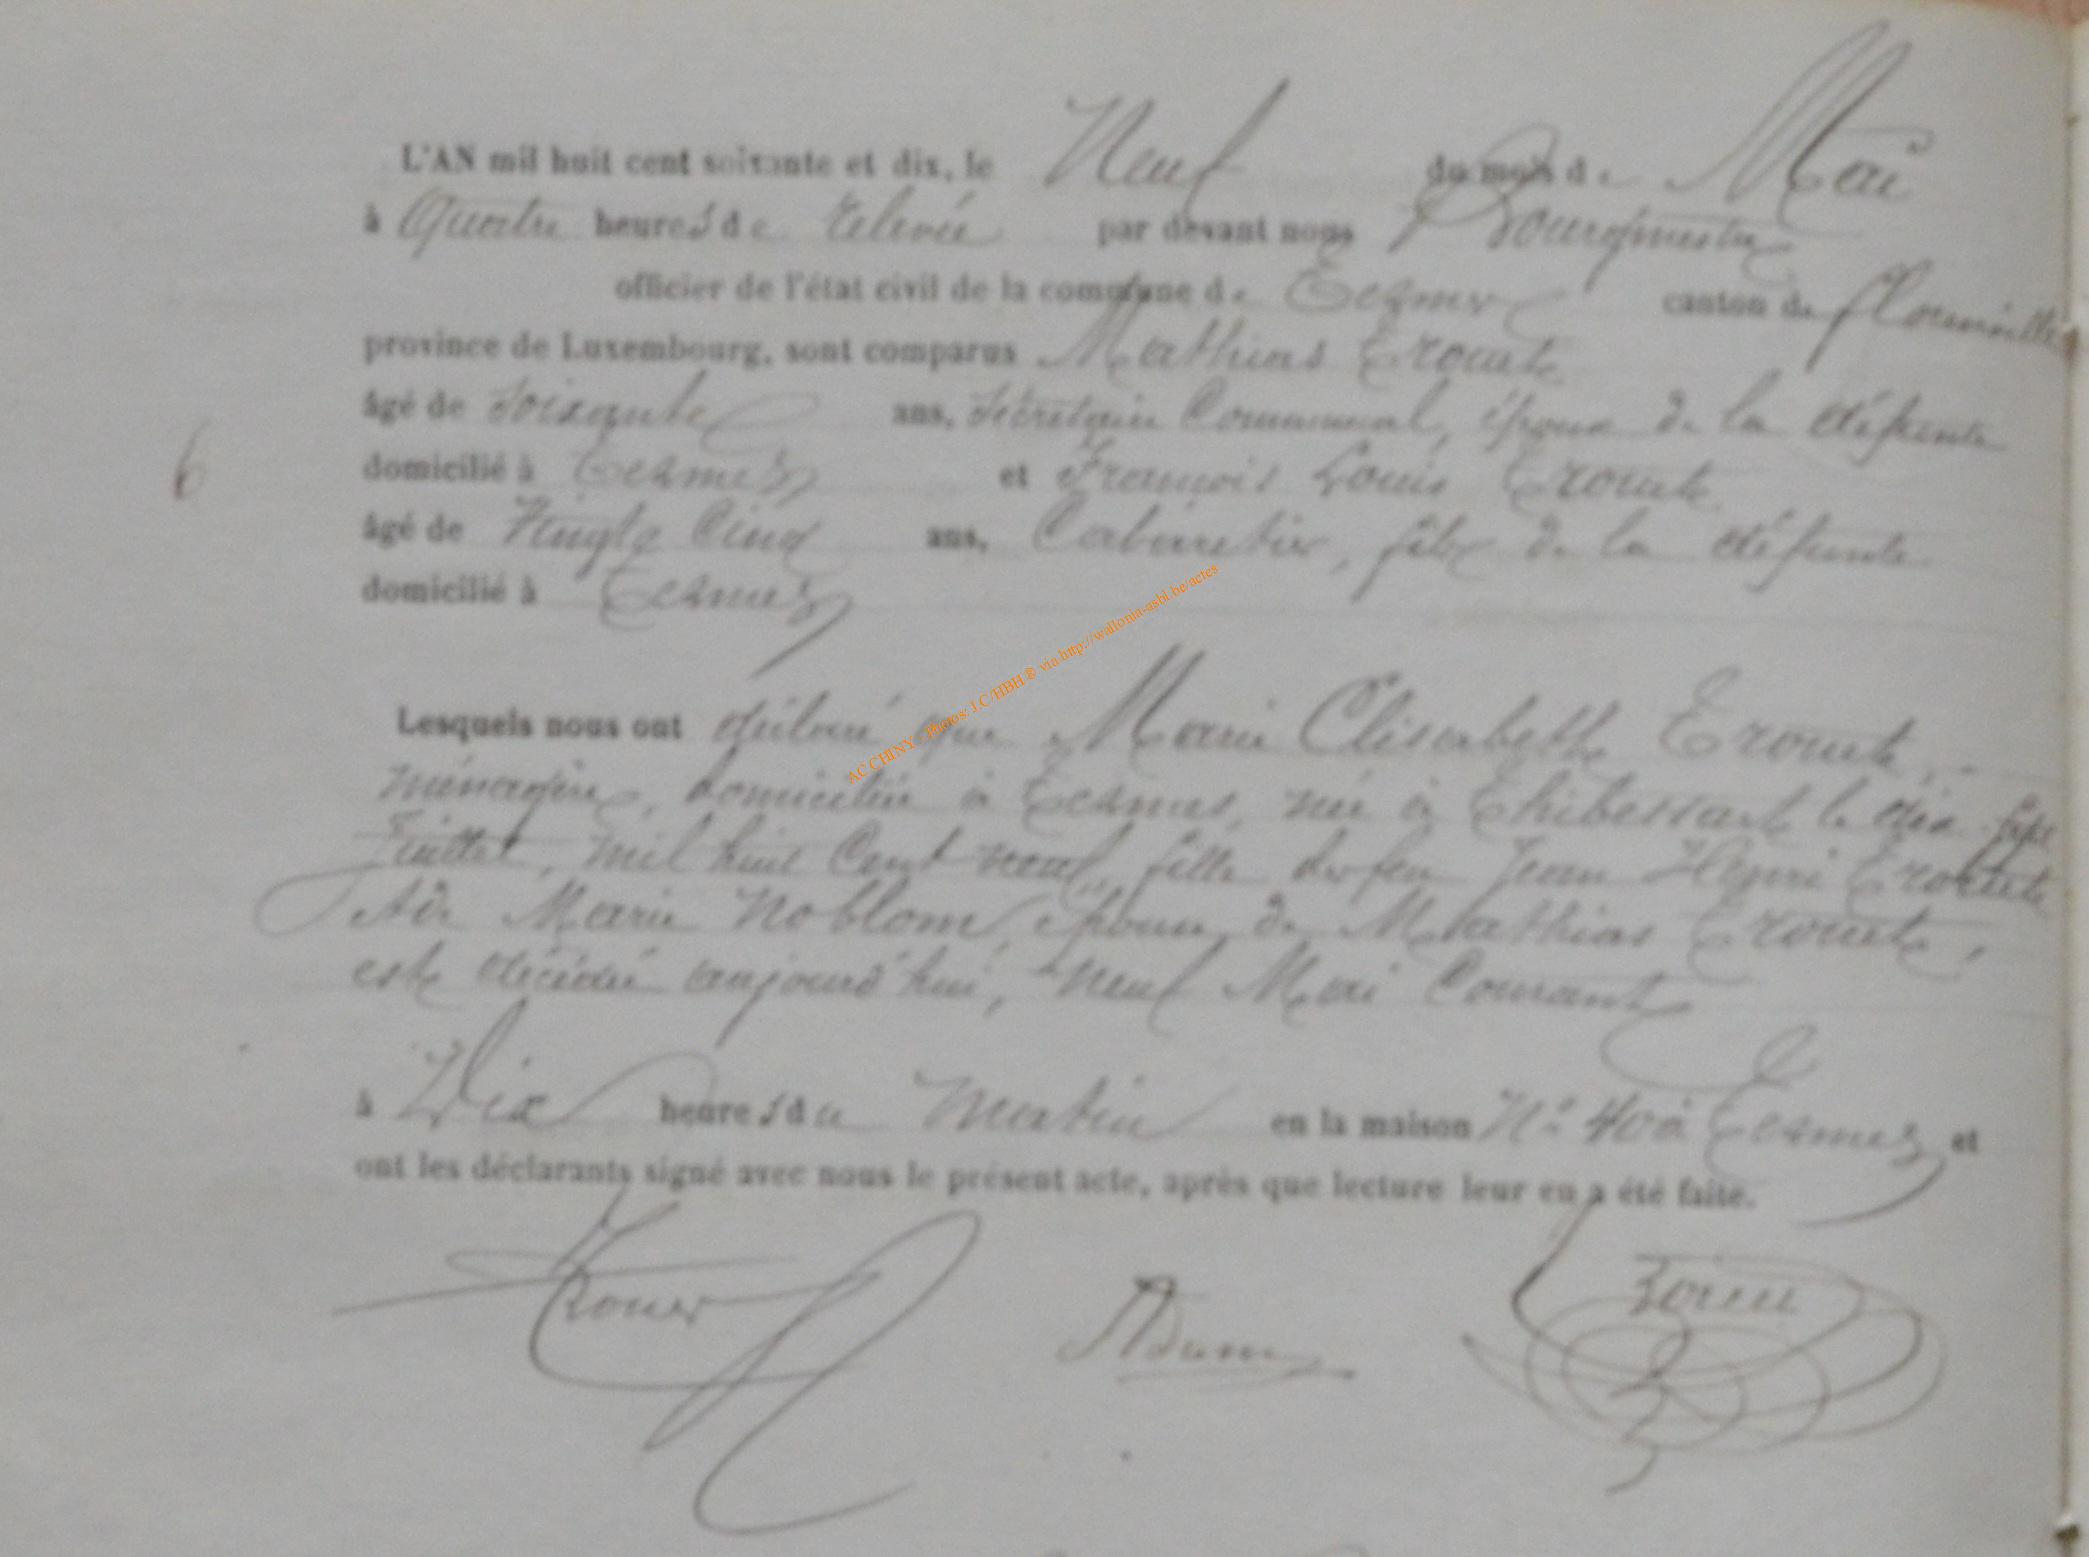 L'AN mil huit cent soixante et dix, le Neuf du mois de Mai
à Quatre heures de relevée par devant nous Bourgmestre
officier de l'état civil de la commune de canton de Florenville
province de Luxembourg, sont comparus Mathias
âgé de Soixante ans, Secrétaire Communal, époux de la défunte
domicilié à et François Louis
âgé de Vingt Cinq ans, Cabaretier, fils de la défunte
domicilié à
6
Lesquels nous ont déclaré que Marie Elisabeth
ménagère, domiciliée à née à Thibessart le dix sept
Juillet, mil huit Cent neuf, fille de feu Jean Henri
et de Marie Noblom, épouse de Mathias
est décédée aujourd'hui, neuf Mai Courant
à Dix heures du Matin en la maison N° 40 à et
ont les déclarants signé avec nous le présent acte, après que lecture leur en a été faite.
Adam
AC CHINY - Photos: J.C/HBH® via http://wallonia-asbl.be/actes